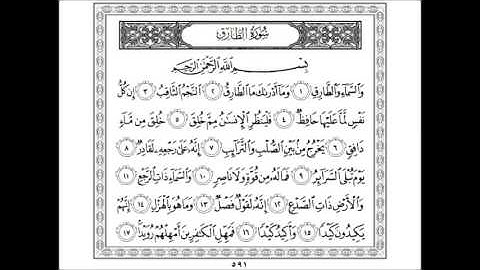 سُورَةُ الطَّارِقِ
بِسْمِ اللَّهِ الرَّحْمَٰنِ الرَّحِيمِ
وَالسَّمَاءِ وَالطَّارِقِ ١ وَمَا أَدْرَىٰكَ مَا الطَّارِقُ ٢ النَّجْمُ الثَّاقِبُ ٣ إِن كُلُّ
نَفْسٍ لَّمَّا عَلَيْهَا حَافِظٌ ٤ فَلْيَنظُرِ الْإِنسَٰنُ مِمَّ خُلِقَ ٥ خُلِقَ مِن مَّاءٍ
دَافِقٍ ٦ يَخْرُجُ مِن بَيْنِ الصُّلْبِ وَالتَّرَائِبِ ٧ إِنَّهُ عَلَىٰ رَجْعِهِ لَقَادِرٌ ٨
يَوْمَ تُبْلَى السَّرَائِرُ ٩ فَمَا لَهُ مِن قُوَّةٍ وَلَا نَاصِرٍ ١٠ وَالسَّمَاءِ ذَاتِ الرَّجْعِ ١١
وَالْأَرْضِ ذَاتِ الصَّدْعِ ١٢ إِنَّهُ لَقَوْلٌ فَصْلٌ ١٣ وَمَا هُوَ بِالْهَزْلِ ١٤ إِنَّهُمْ
يَكِيدُونَ كَيْدًا ١٥ وَأَكِيدُ كَيْدًا ١٦ فَمَهِّلِ الْكَٰفِرِينَ أَمْهِلْهُمْ رُوَيْدًا ١٧
٥٩١